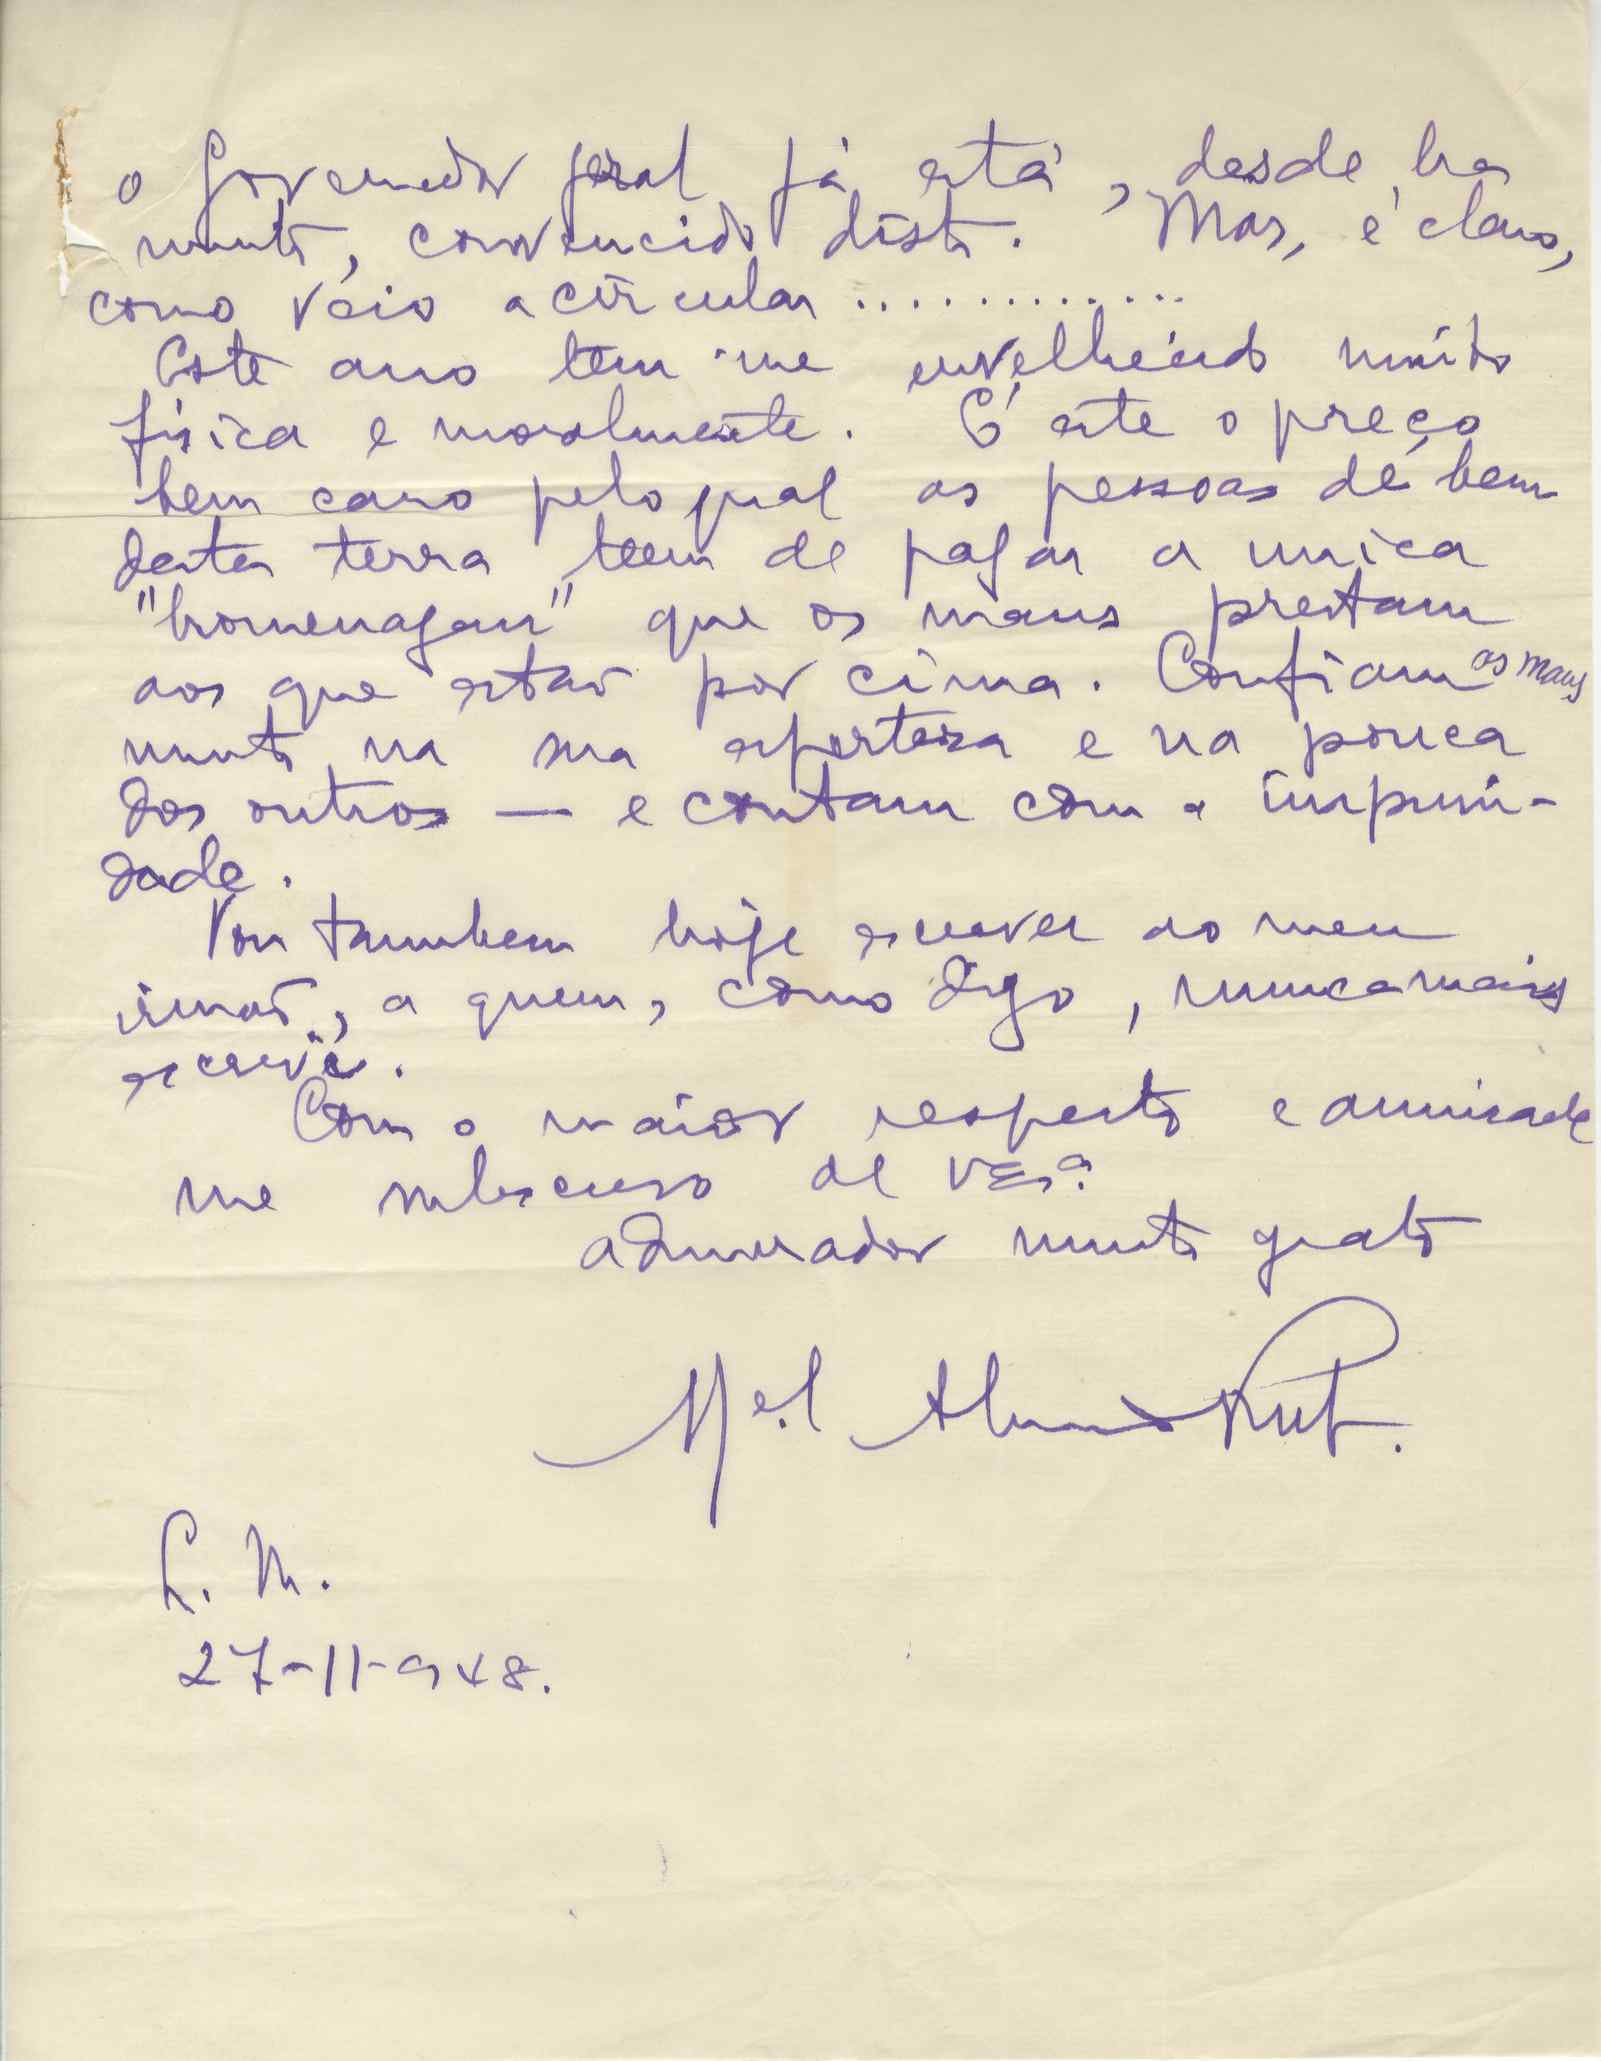 o Governador geral já está, desde ha
muito, convencido disto. Mas, é claro,
como veio a circular ............
Este ano tem-me envelhecido muito
física e moralmente. É este o preço
bem caro pelo qual as pessoas de bem
desta terra teem de pagar a unica
"homenagem" que os maus prestam
aos que estão por cima. Confiam os maus
muito na sua esperteza e na pouca
dos outros — e contam com a impuni-
dade.
Vou tambem hoje escrever ao meu
irmão, a quem, como digo, nunca mais
escrevi.
Com o maior respeito e amizade
me subscrevo de V Exª
admirador muito grato
L. M.
27-11-948.